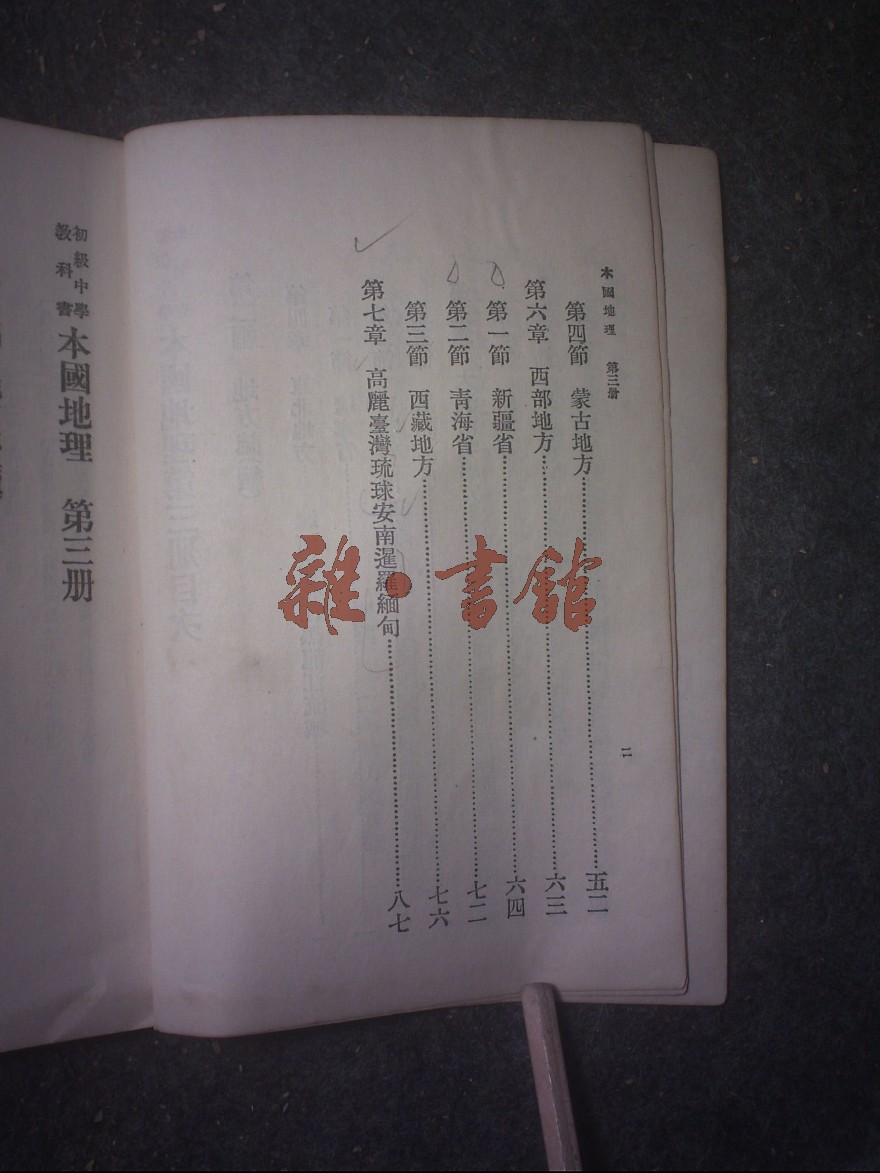 本國地理　第三册
第四節　蒙古地方………五二
第六章　西部地方………六三
第一節　新疆省………六四
第二節　青海省………七二
第三節　西藏地方………七六
第七章　高麗臺灣琉球安南暹羅緬甸………八七
二
初級中學
教科書
本國地理　第三册
雜·書館